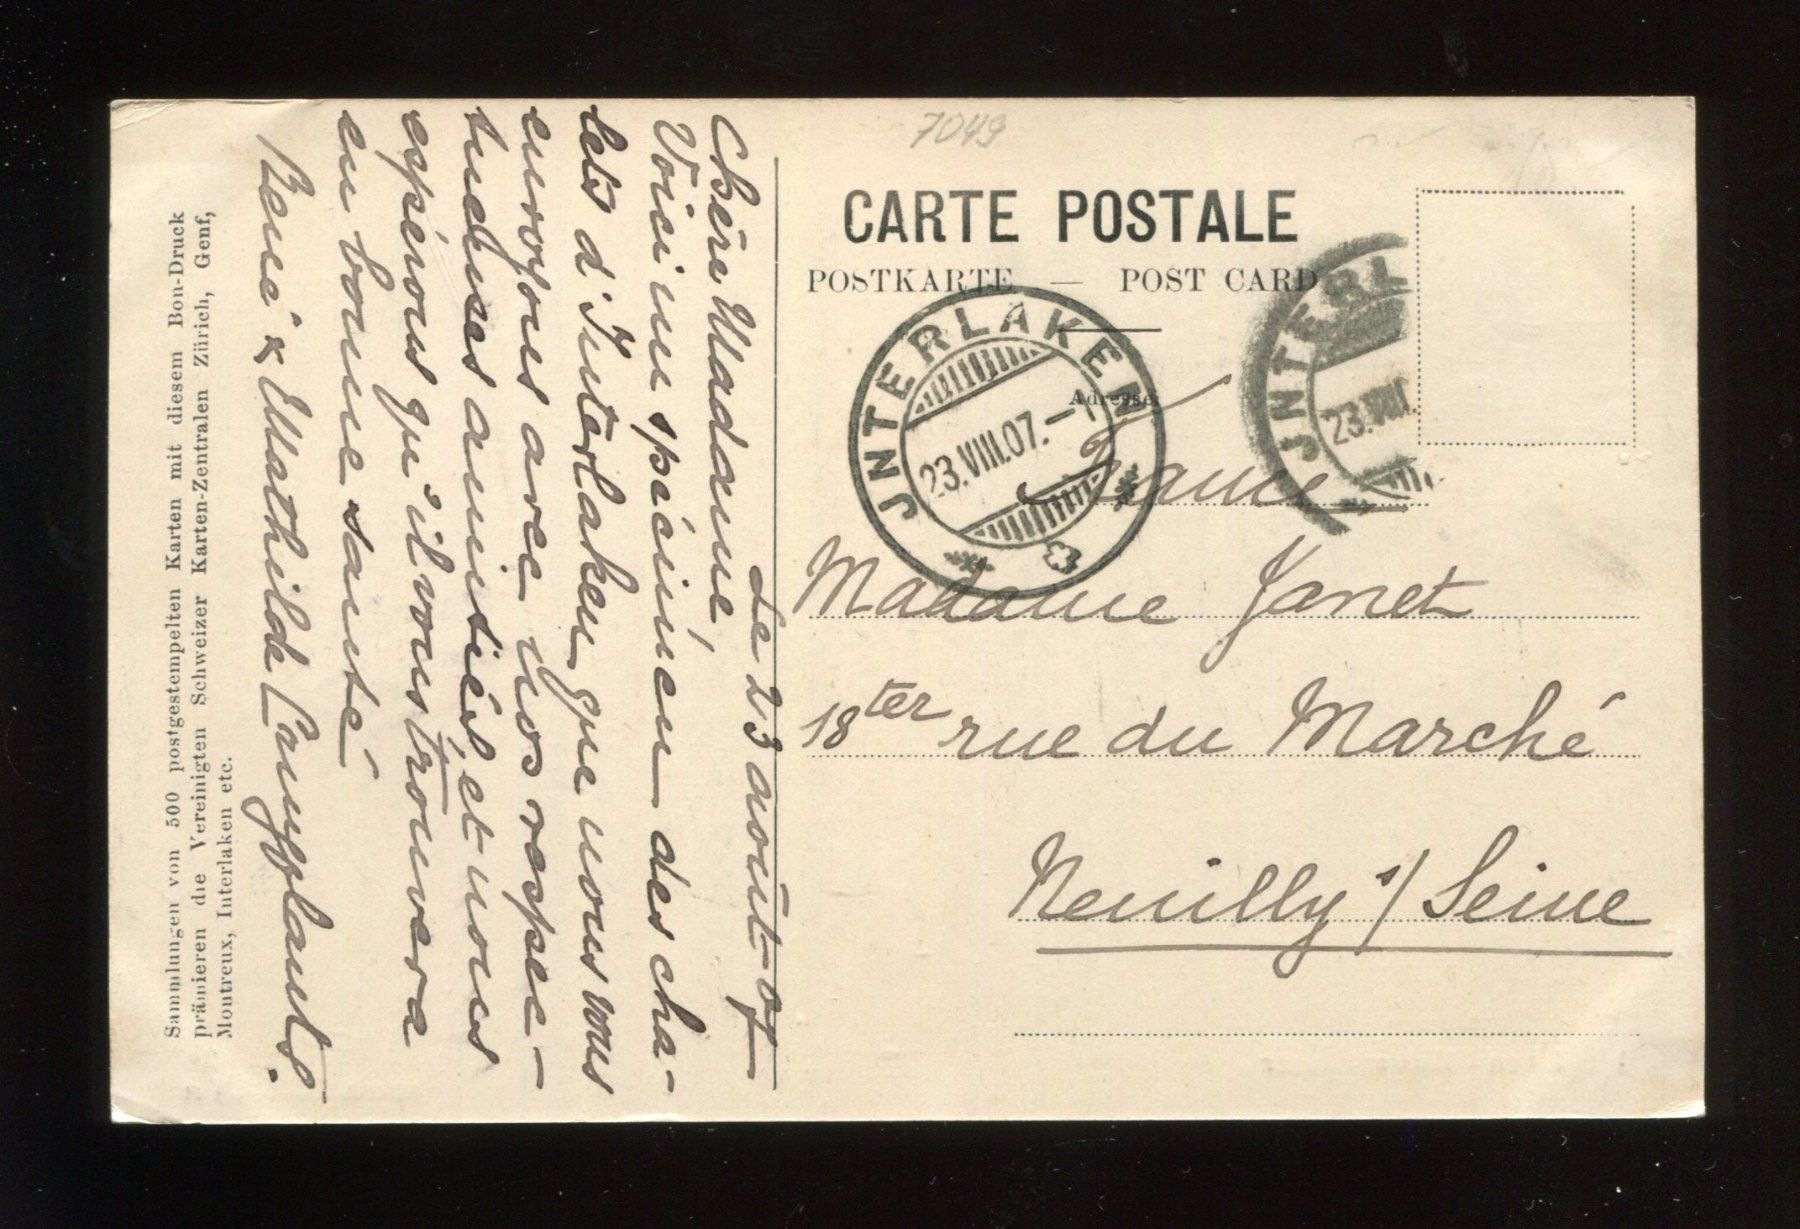 7049
CARTE POSTALE
POSTKARTE — POST CARD
JNTERLAKEN
23.VIII.07.-1
JNTERL
23.VIII.
Adresse
France
Madame Janet
18ter rue du Marché
Neuilly s/ Seine
Le 23 août 07
Chère Madame
Voici un spécimen des cha-
lets d'Interlaken que nous vous
envoyons avec nos respec-
tueuses amitiés, et nous
espérons qu'il vous trouvera
en bonne santé
René & Mathilde
Sammlungen von 500 postgestempelten Karten mit diesem Bon-Druck
prämieren die Vereinigten Schweizer Karten-Zentralen Zürich, Genf,
Montreux, Interlaken etc.